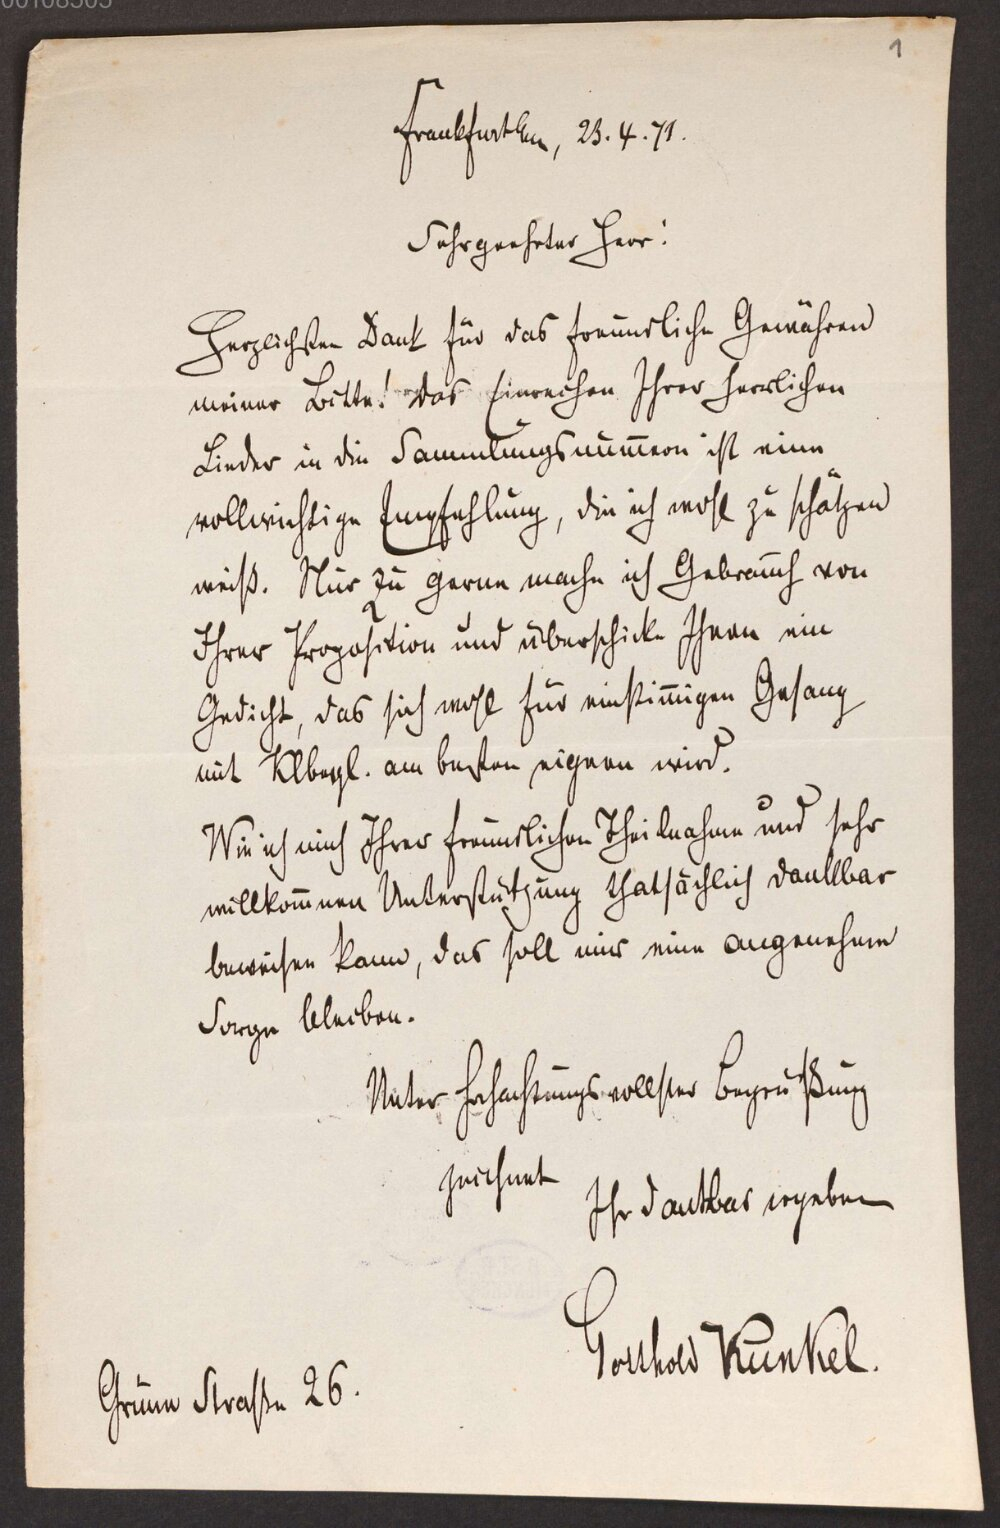 00108505
1
Frankfurt a/m, 23.4.71.
Sehrgeehrter Herr!
Herzlichsten Dank für das freundliche Gewähren
meiner Bitte! Das Einreihen Ihrer herrlichen
Lieder in die Sammlungsnum̅ern ist eine
vollwichtige Empfehlung, die ich wohl zu schätzen
weiß. Nur zu gerne mache ich Gebrauch von
Ihrer Proposition und überschicke Ihnen ein
Gedicht, das sich wohl für einstim̅igen Gesang
mit Klbegl. am besten eignen wird.
Wie ich mich Ihrer freundlichen Theilnahme und sehr
willkom̅nen Unterstützung thatsächlich dankbar
beweisen kann, das soll mir eine angenehme
Sorge bleiben.
Unter hochachtungsvollster Begrüßung
zeichnet
Ihr dankbar ergeben
Gotthold Kunkel.
Grüne Straße 26.